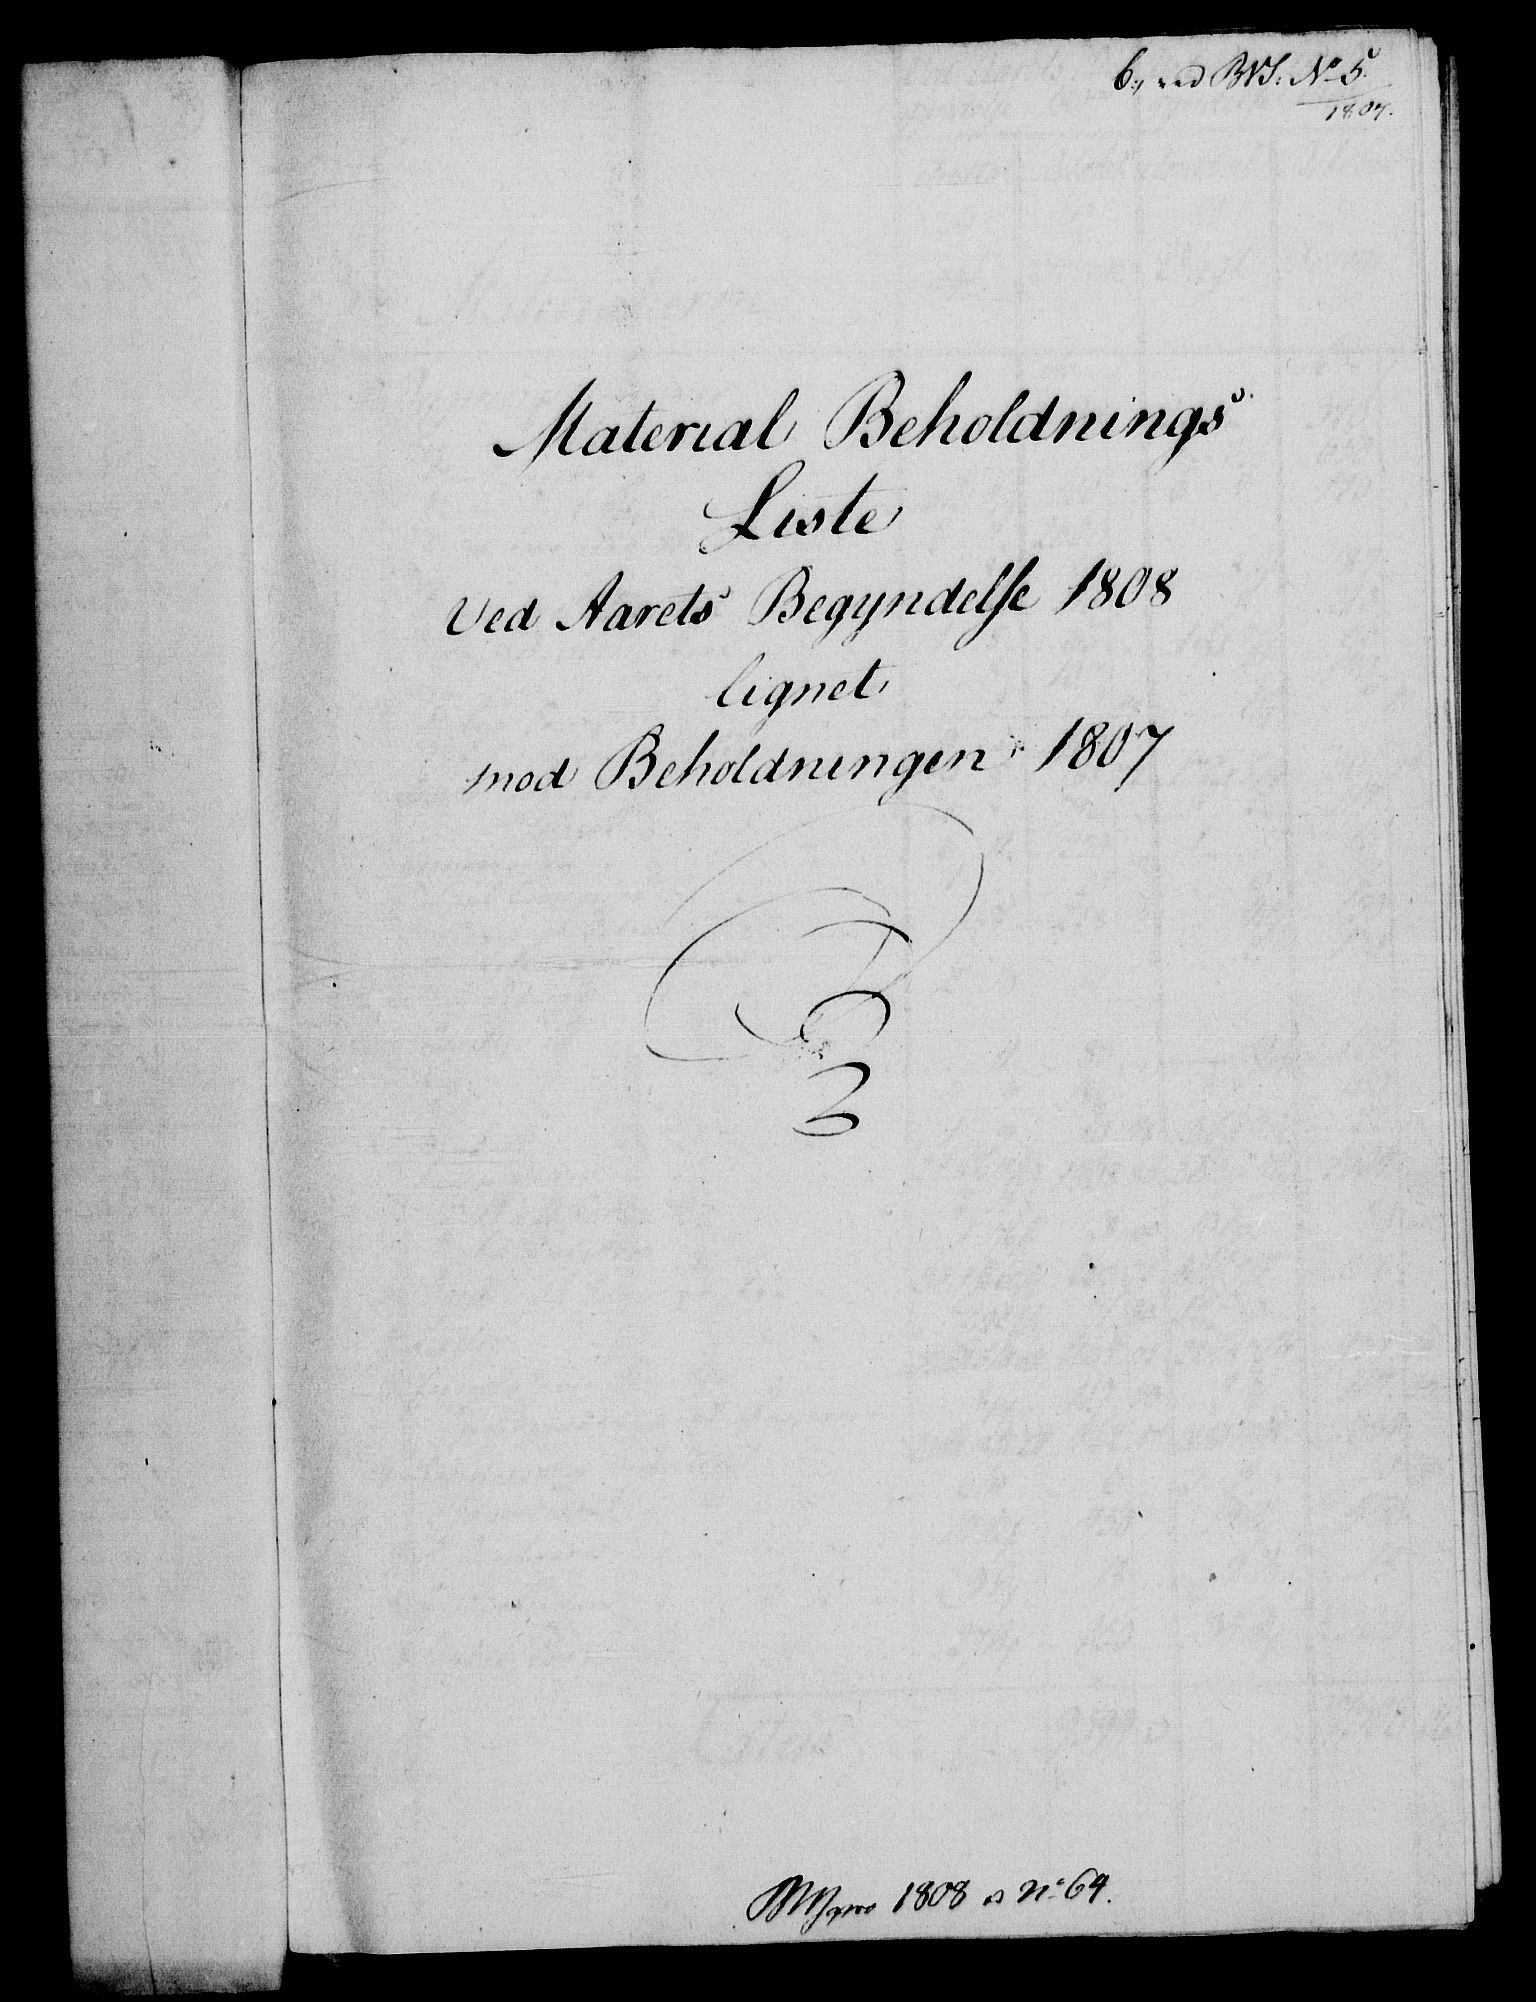 No 5
1807.
Material Beholdnings
Liste
Ved Aarets Begyndelse 1808
lignet
mod Beholdningen 1807
1808 No 64.